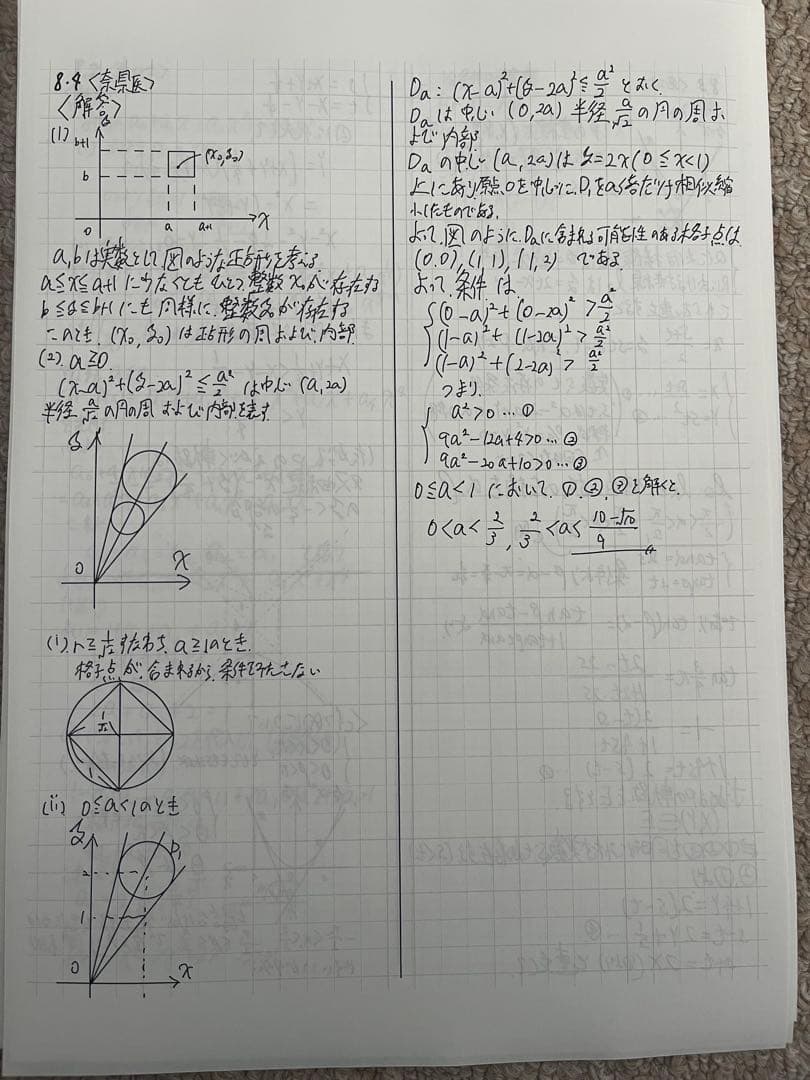 8.4 <奈県医>
<解答>
(1)
y
b+1
b
(x₀, y₀)
0
a
a+1
x
a, bは実数として図のような正方形を考える
a≦x≦a+1に少なくともひとつ整数x₀が存在する
b≦y≦b+1にも同様に、整数y₀が存在する
このとき、(x₀, y₀)は正方形の周および内部
(2). a≧0.
(x-a)²+(y-2a)²≦a²/2 は中心 (a, 2a)
半径 a/√2 の円の周および内部を表す
y
0
x
(i). r≧1/√2 すなわち a≧1のとき.
格子点が含まれるから、条件をみたさない
1/√2
1
(ii) 0≦a<1のとき
y
D₁
2
1
0
x
Da: (x-a)²+(y-2a)²≦a²/2 とおく.
Da は中心 (0, 2a) 半径 a/√2 の円の周お
よび内部
Da の中心 (a, 2a) は y=2x (0≦x<1)
上にあり原点Oを中心に、D₁をa倍だけ相似縮
小したものである.
よって、図のように、Daに含まれる可能性のある格子点は
(0,0), (1,1), (1,2) である.
よって、条件は
(0-a)²+(0-2a)²>a²/2
(1-a)²+(1-2a)²>a²/2
(1-a)²+(2-2a)²>a²/2
つまり、
a²>0 … ①
9a²-12a+4>0 … ②
9a²-20a+10>0 … ③
0≦a<1 において、①, ②, ③を解くと.
0<a<2/3, 2/3<a<(10-√10)/9